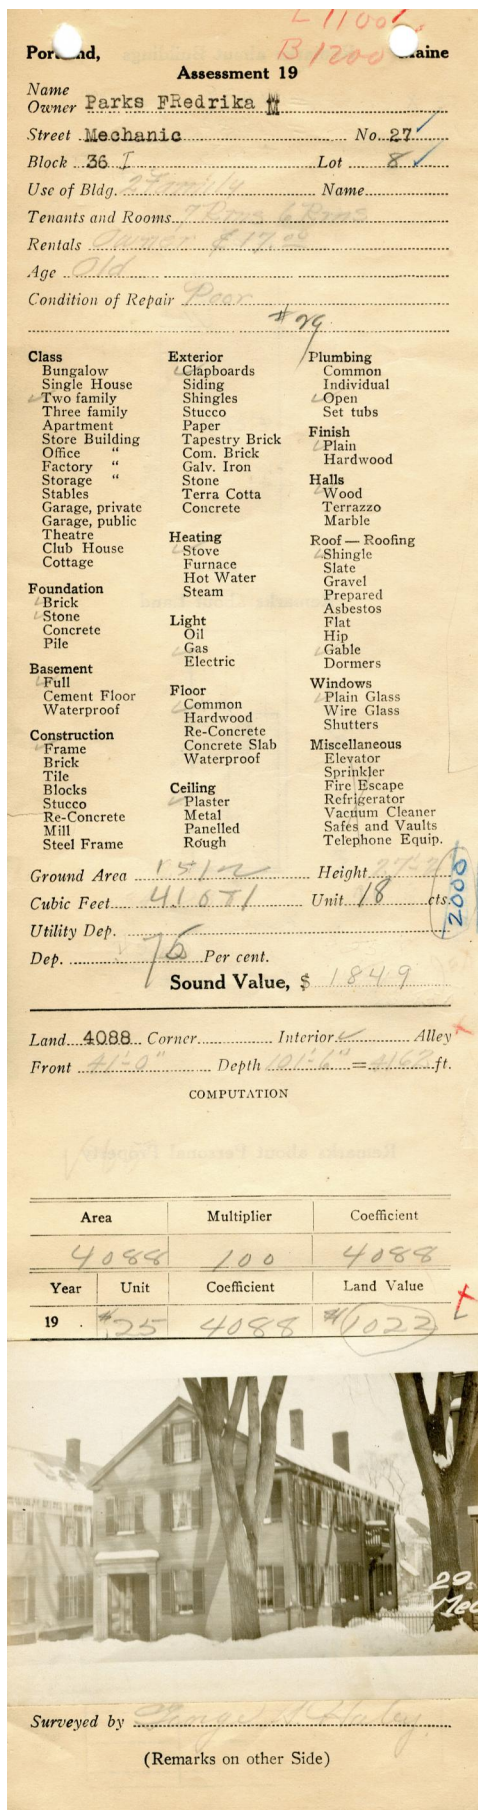 L 1100
B 1200
Portland, Maine
Assessment 19
Name
Owner Parks FRedrika M
Street Mechanic No. 27
Block 36 I Lot 8
Use of Bldg. 2 Family Name
Tenants and Rooms 7 Rms 6 Rms
Rentals Owner $17.00
Age Old
Condition of Repair Poor
Class
Bungalow
Single House
Two family
Three family
Apartment
Store Building
Office "
Factory "
Storage "
Stables
Garage, private
Garage, public
Theatre
Club House
Cottage
Foundation
Brick
Stone
Concrete
Pile
Basement
Full
Cement Floor
Waterproof
Construction
Frame
Brick
Tile
Blocks
Stucco
Re-Concrete
Mill
Steel Frame
Exterior
Clapboards
Siding
Shingles
Stucco
Paper
Tapestry Brick
Com. Brick
Galv. Iron
Stone
Terra Cotta
Concrete
Heating
Stove
Furnace
Hot Water
Steam
Light
Oil
Gas
Electric
Floor
Common
Hardwood
Re-Concrete
Concrete Slab
Waterproof
Ceiling
Plaster
Metal
Panelled
Rough
Plumbing
Common
Individual
Open
Set tubs
Finish
Plain
Hardwood
Halls
Wood
Terrazzo
Marble
Roof — Roofing
Shingle
Slate
Gravel
Prepared
Asbestos
Flat
Hip
Gable
Dormers
Windows
Plain Glass
Wire Glass
Shutters
Miscellaneous
Elevator
Sprinkler
Fire Escape
Refrigerator
Vacuum Cleaner
Safes and Vaults
Telephone Equip.
Ground Area Height
Cubic Feet Unit 18 cts.
2000
Utility Dep.
Dep. 76 Per cent.
Sound Value, $ 1849
Land 4088 Corner Interior Alley
Front 41'-0" Depth 101'-6" = 4162 ft.
COMPUTATION
Area Multiplier Coefficient
4088 100 4088
Year Unit Coefficient Land Value
19 $.25 4088 $1022
29
Mec
Surveyed by
(Remarks on other Side)